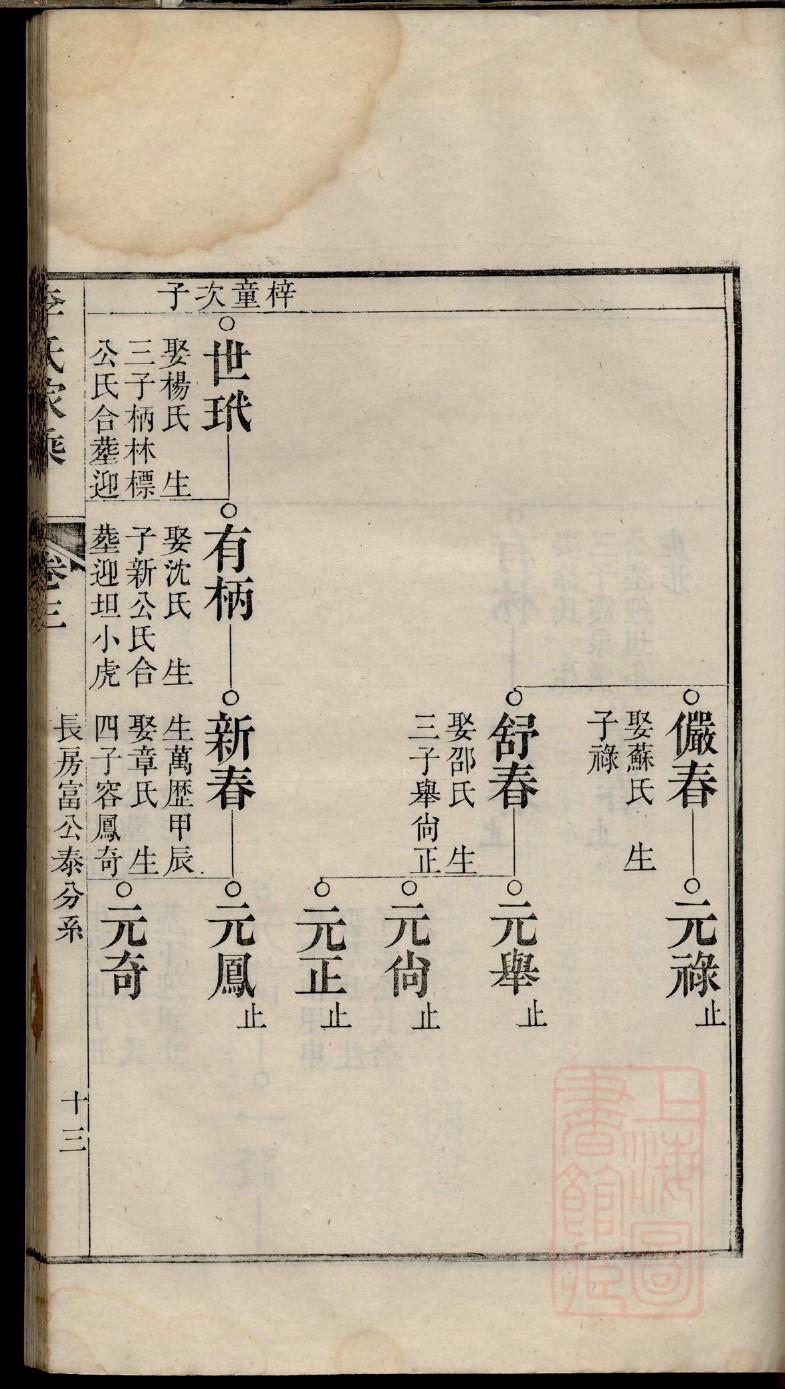 儼春
娶蘇氏 生
子祿
元祿
止
舒春
娶邵氏 生
三子舉尙正
元舉
止
元尙
止
元正
止
梓童次子
世珖
娶楊氏 生
三子柄林標
公氏合塟迎
有柄
娶沈氏 生
子新公氏合
塟迎坦小虎
新春
生萬歴甲辰
娶章氏 生
四子容鳳奇
元鳳
止
元奇
李氏家乘
卷三
長房富公泰分系
十三
上海圖書館藏